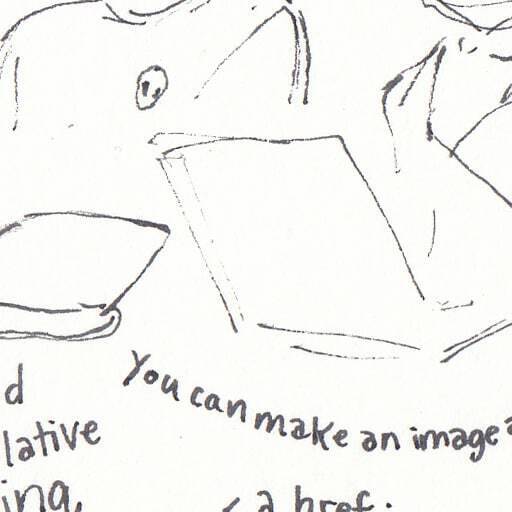 d
lative
ing,
You can make an image a
< a href: